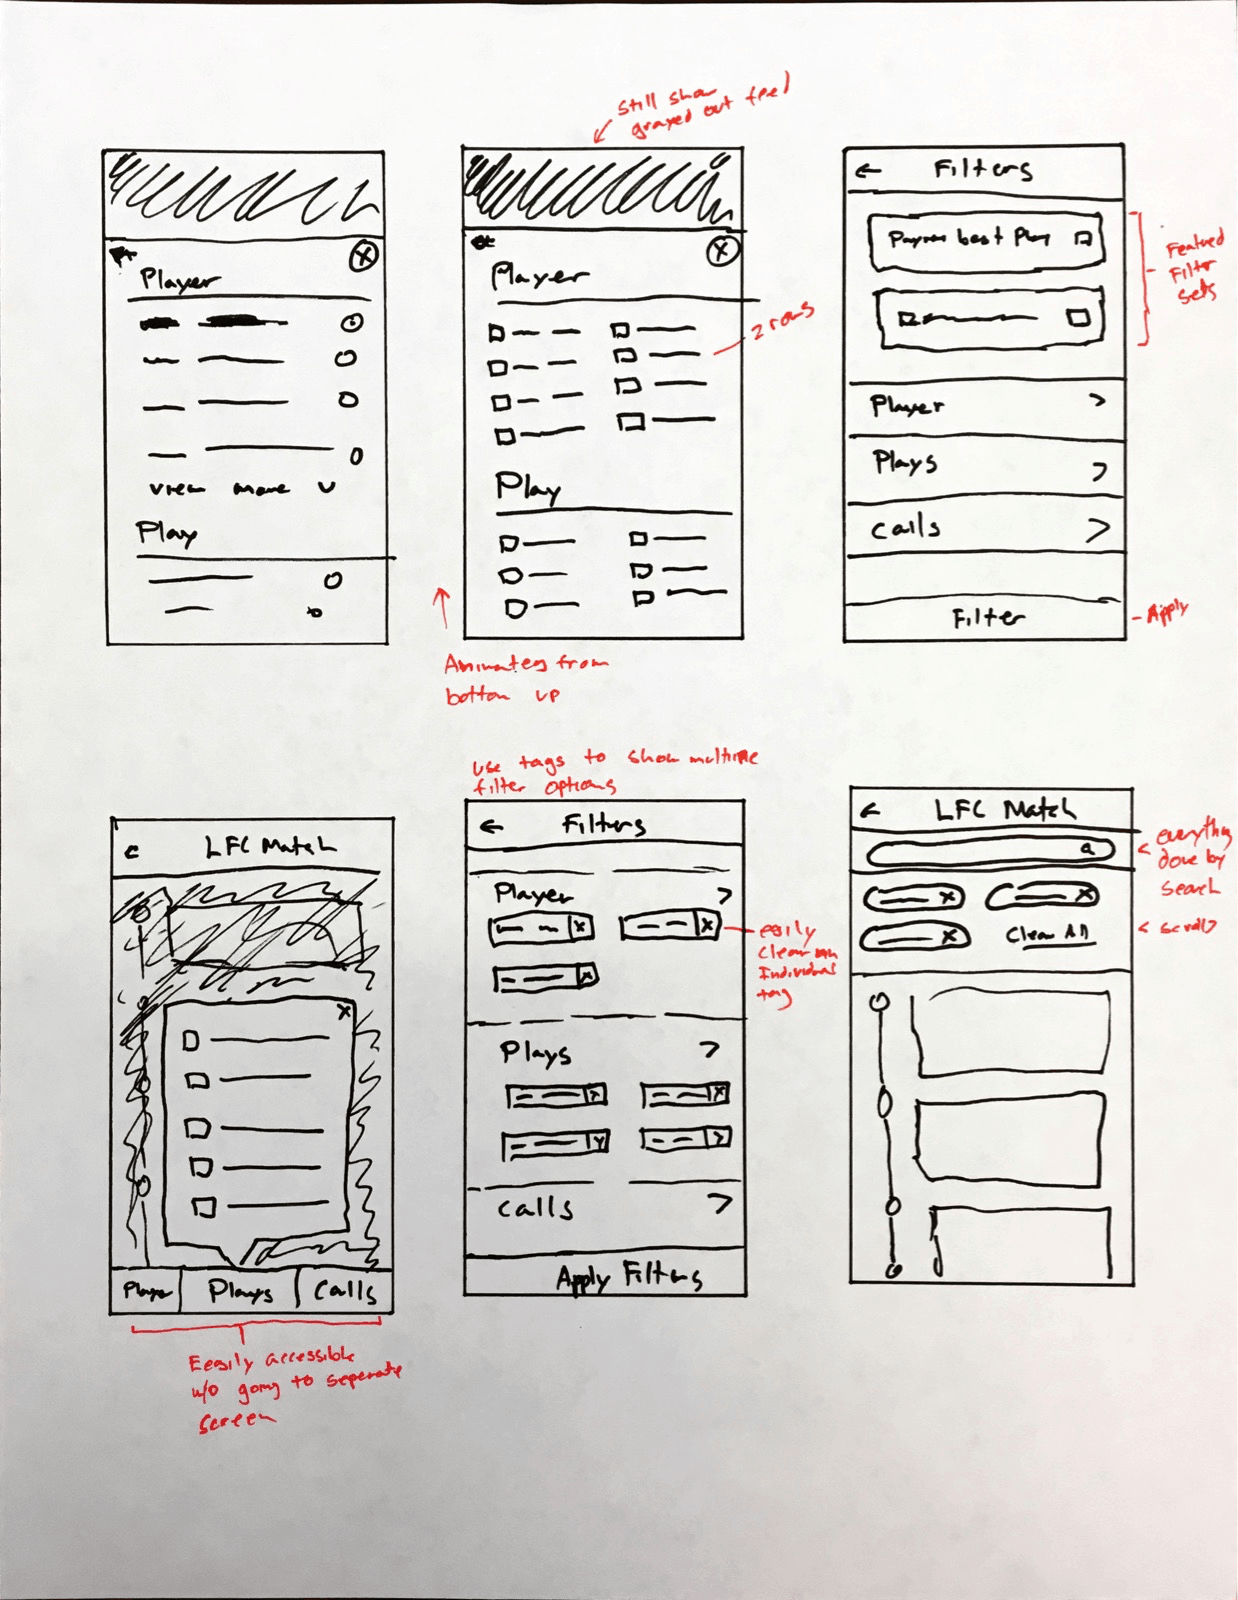 still show
grayed out feed
Player
view more
Play
Player
2 rows
Play
Animates from
bottom up
Filters
best Play
Featured
Filter
sets
Player
>
Plays
>
Calls
>
Filter
- Apply
LFC Match
X
Player
Plays
Calls
Eeasily accessible
w/o going to seperate
screen
use tags to show multiple
filter options
Filters
Player
>
easily
clear an
Individual
tag
Plays
>
Calls
>
Apply Filters
LFC Match
everything
done by
search
Clear All
< scroll?